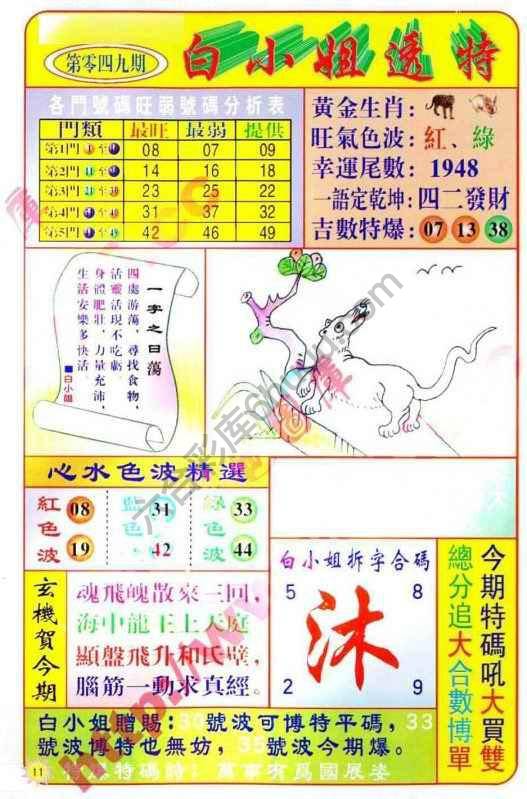 第零四九期
白小姐透特
各門號碼旺弱號碼分析表
門類 最旺 最弱 提供
第1門 08 07 09
第2門 14 16 18
第3門 23 25 22
第4門 31 37 32
第5門 42 46 49
黃金生肖：
旺氣色波：紅、綠
幸運尾數：1948
一語定乾坤：四二發財
吉數特爆：07 13 38
一字之曰蕩
四處游蕩，尋找食物，
活靈活現不吃虧，
身體肥壯，力量充沛，
生活安樂多快活
白小姐
心水色波精選
紅色波 08 19
藍色波 31 42
綠色波 33 44
玄機賀今期
魂飛魄散來三回，
海中龍王上天庭
顯盤飛升和氏璧，
腦筋一動求真經。
白小姐拆字合碼
5 8
沐
2 9
今期特碼吼大買雙
總分追大合數博單
白小姐贈賜：30號波可博特平碼，33
號波博特也無妨，35號波今期爆。
特碼詩：萬事有為國展姿
11
六合彩库
http://www.